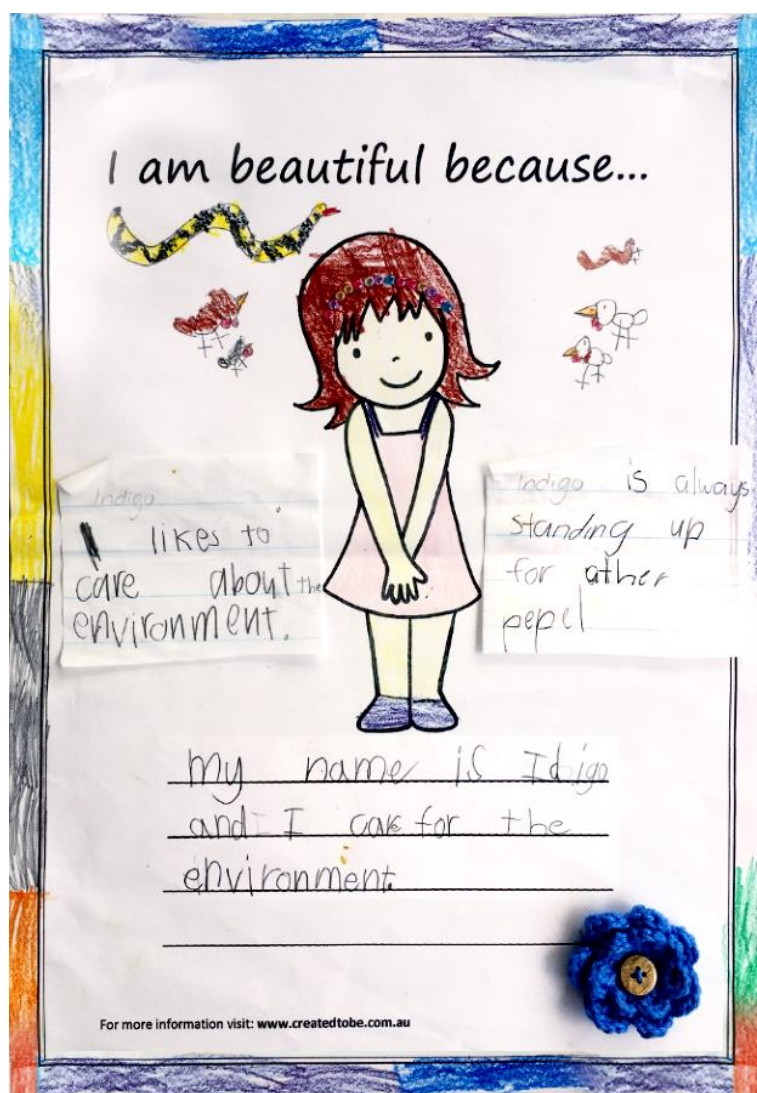 I am beautiful because...
Indigo
likes to
care about the
environment.
Indigo is always
standing up
for ather
pepel
my name is Idigo
and I care for the
environment.
For more information visit: www.createdtobe.com.au